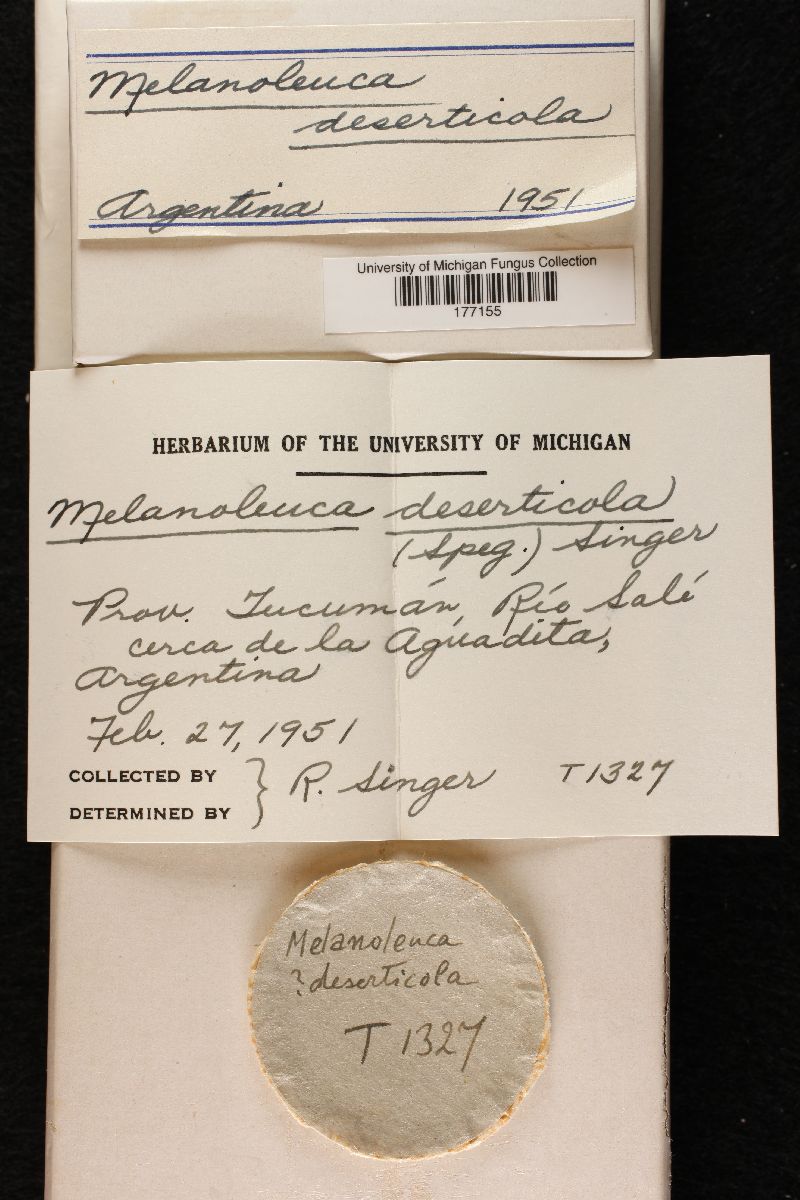 Melanoleuca
deserticola
Argentina 1951
University of Michigan Fungus Collection
177155
HERBARIUM OF THE UNIVERSITY OF MICHIGAN
Melanoleuca deserticola
(Speg.) Singer
Prov. Tucumán, Río Salí
cerca de la Aguadita,
Argentina
Feb. 27, 1951
COLLECTED BY
DETERMINED BY } R. Singer T1327
Melanoleuca
? deserticola
T 1327